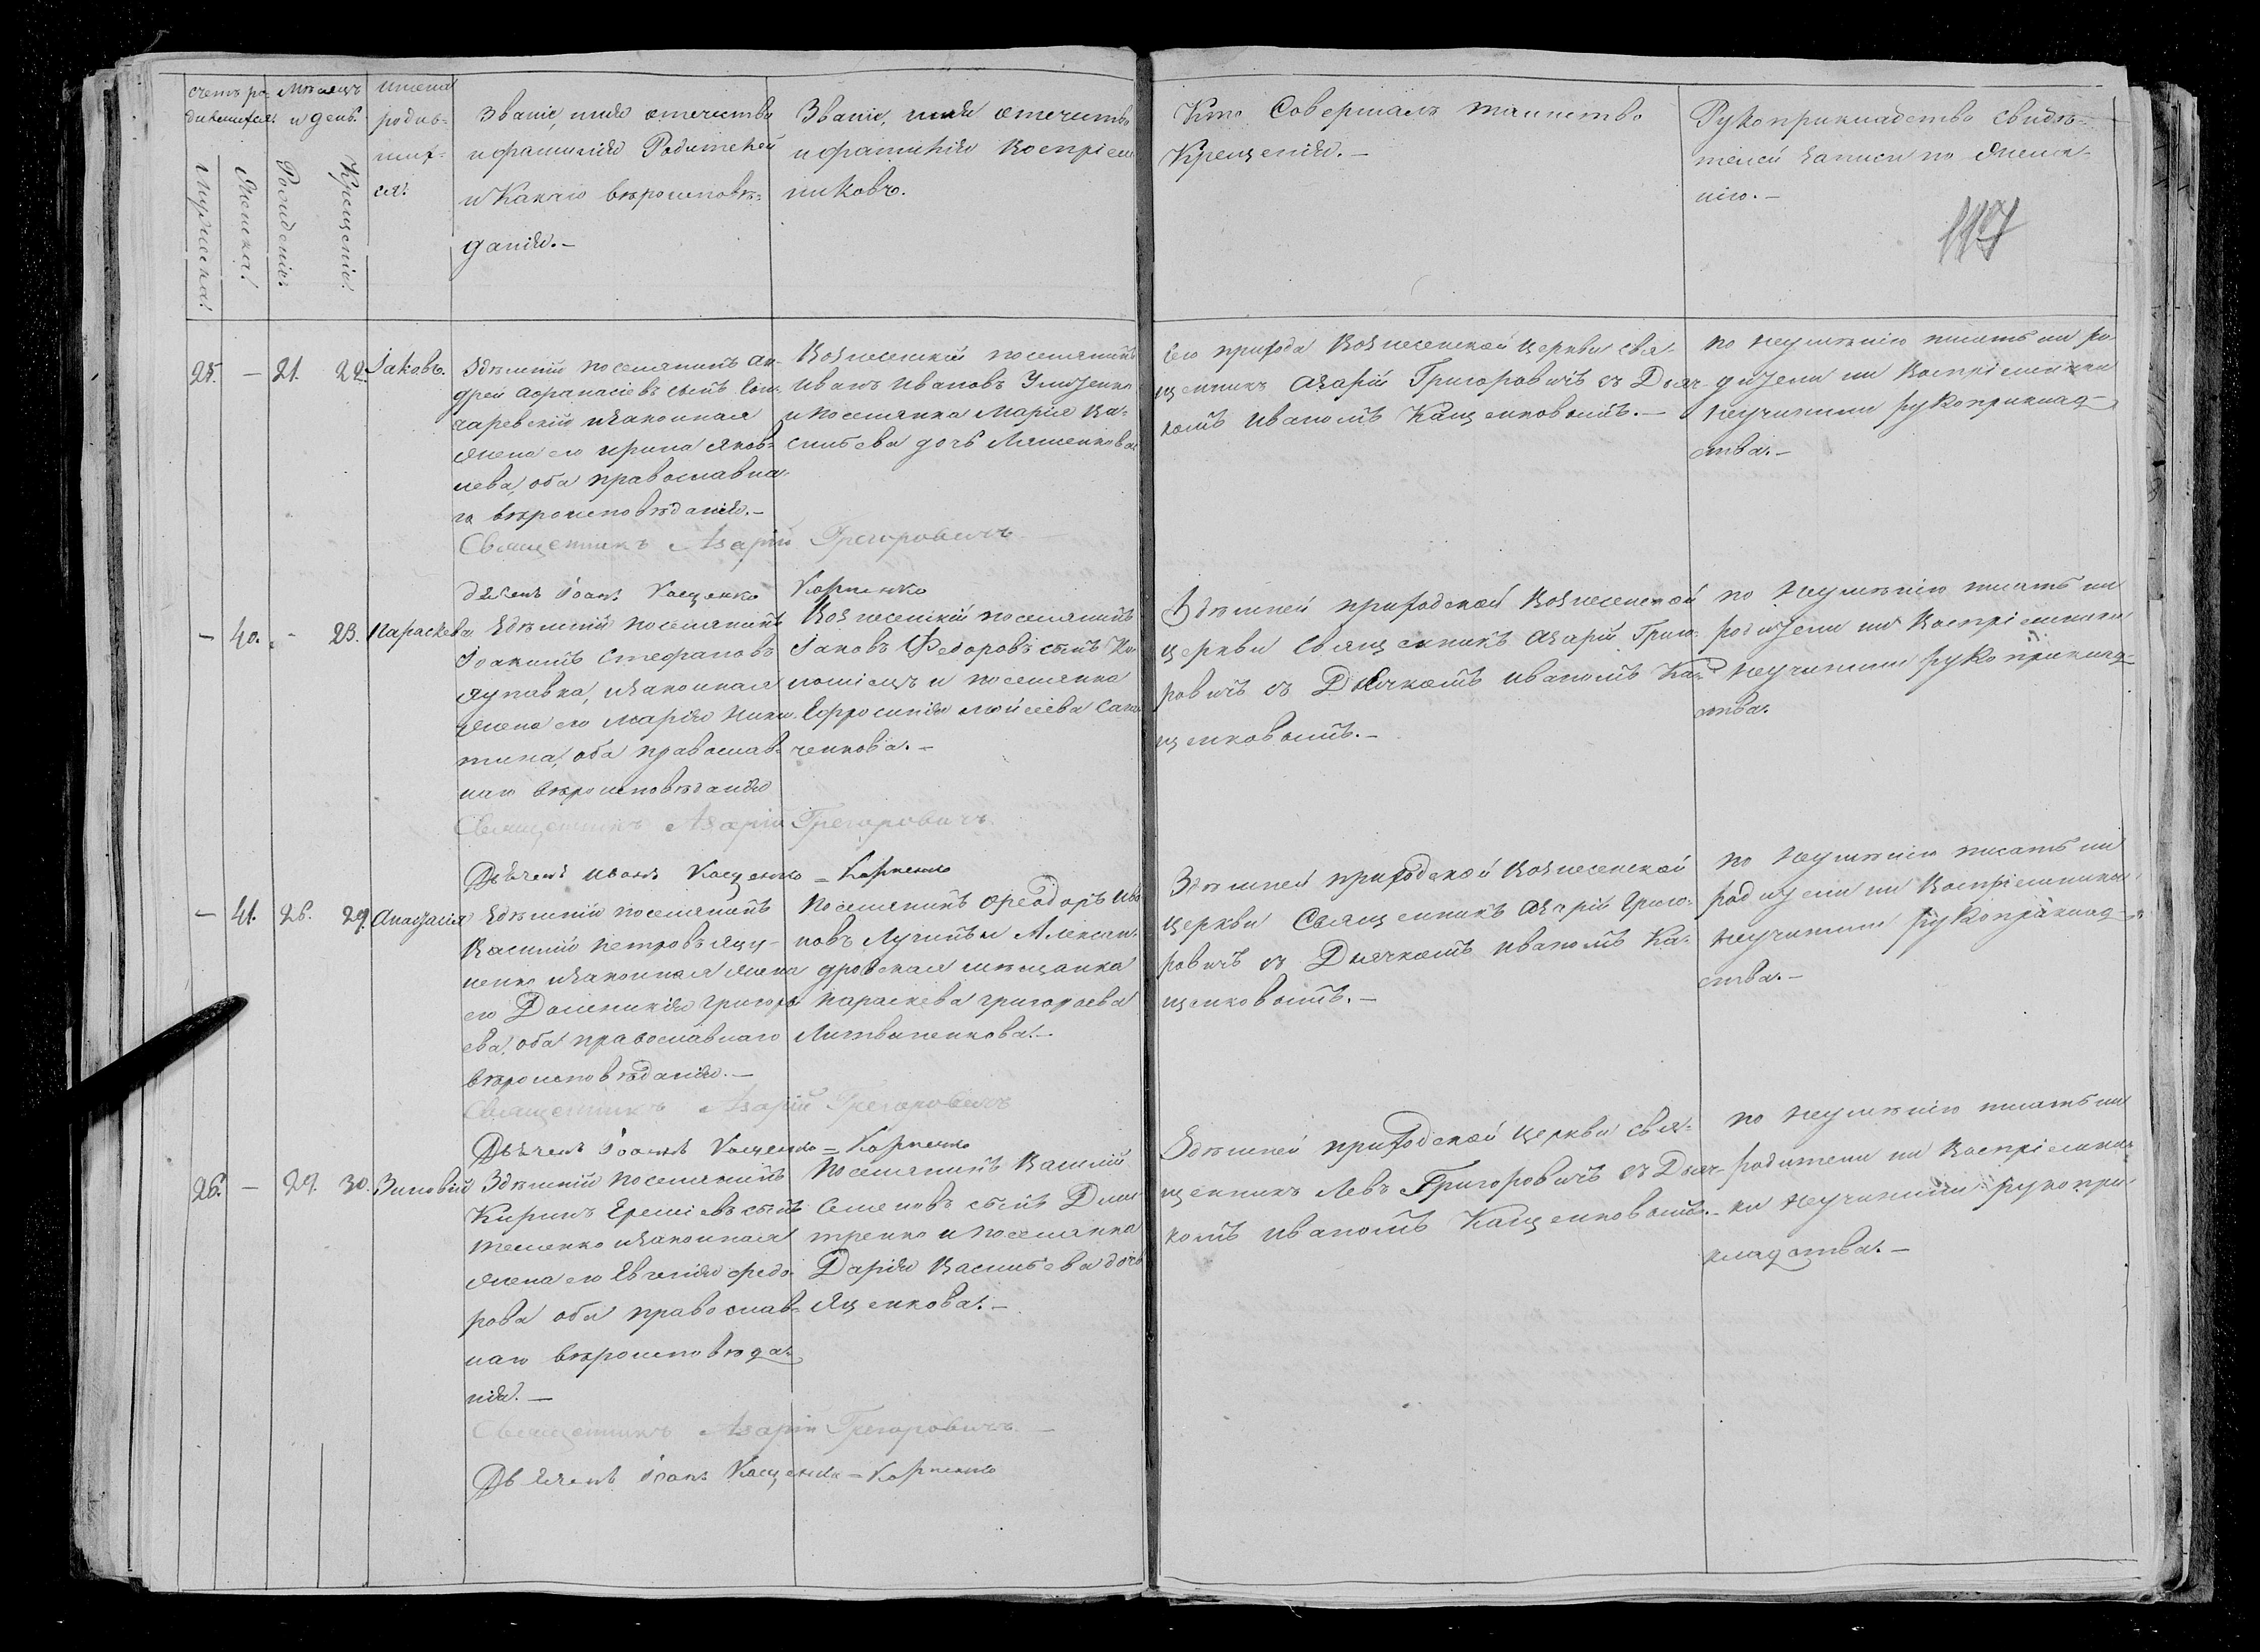 счетъ ро-
дившихся.
Мужеска.
Женска.
Мѣсяцъ
и день.
Рожденія.
Крещенія.
имена
родив-
ших-
ся.
Званіе, имя отечество
и фамилія Родителей
и Какаго вѣроисповѣ-
данія.-
Званіе, имя отечество
и фамилія Воспріем
никовъ.
Кто Совершалъ таинство
Крещенія.-
Рукоприкладство свидѣ-
телей записи по желан-
нію.-
25. - 21. 22. Іаковъ.
Здѣшній поселянинъ Ан-
дрей Афанасіевъ сынъ
и законная
жена его Ирина Яков-
лева, оба православна-
го вѣроисповѣданія.-
Священникъ Азарій Григоровичъ
Дьячекъ Іоанъ Кащенко Карпенко
Вознесенскій поселянинъ
Иванъ Ивановъ
и поселянка Марія Ва-
сильева дочь Ляшенкова
Сего прихода Вознесенской Церкви свя-
щенникъ Азарій Григоровичъ съ Дьяч-
комъ Иваномъ Кащенковымъ.-
по неумѣнію писать ни ро
дители ни Воспріемники
неучинили рукоприклад-
ства.-
- 40. - 23. Параскева
Здѣшній поселянинъ
Іоакимъ Стефановъ
законная
жена его Марія Ники-
тина, оба православ-
наго вѣроисповѣданія
Священникъ Азарій Григоровичъ
Дьячекъ Иванъ Кащенко = Карпенко
Вознесенскій поселянинъ
Іаковъ Федоровъ сынъ Ко
ломіецъ и поселянка
Ефросинія Мойсеева Сав-
ченкова.-
Здѣшней приходской Вознесенской
церкви Священникъ Азарій Григо-
ровичъ съ Дьячкомъ Иваномъ Ка-
щенковымъ.-
по неумѣнію писать ни
родители ни Воспріемники
неучинили рукоприклад-
ства.
- 41. 26. 29. Анастасія
Здѣшній поселянинъ
Василій Петровъ Яцу-
ненко и законная жена
его Домникія Григорь
ева, оба православнаго
вѣроисповѣданія.-
Священникъ Азарій Григоровичъ
Дьячекъ Іоаннъ Кащенко = Карпенко
Поселянинъ Феодоръ Ива
новъ и Алексан-
дровская мѣщанка
Параскева Григорьева
Литвиненкова.-
Здѣшней приходской Вознесенской
церкви Священникъ Азарій Григо-
ровичъ съ Дьячкомъ Иваномъ Ка-
щенковымъ.-
по неумѣнію писать ни
родители ни Воспріемники
неучинили рукоприклад-
ства.-
26. - 29. 30. Зиновій
Здѣшній поселянинъ
Кирилъ Ереміевъ сынъ
и законная
жена его Евгенія Федо-
рова оба православ-
наго вѣроисповѣда-
нія.-
Священникъ Азарій Григоровичъ -
Дьячекъ Іоанъ Кащенко = Карпенко
Поселянинъ Василій
Семеновъ сынъ Дми
тренко и поселянка
Дарія Васильева дочь
Яценкова.-
Здѣшней приходской церкви свя-
щенникъ Левъ Григоровичъ съ Дьяч-
комъ Иваномъ Кащенковымъ.-
по неумѣнію писать ни
родители ни Воспріемни-
ки неучинили рукопри
кладства.-